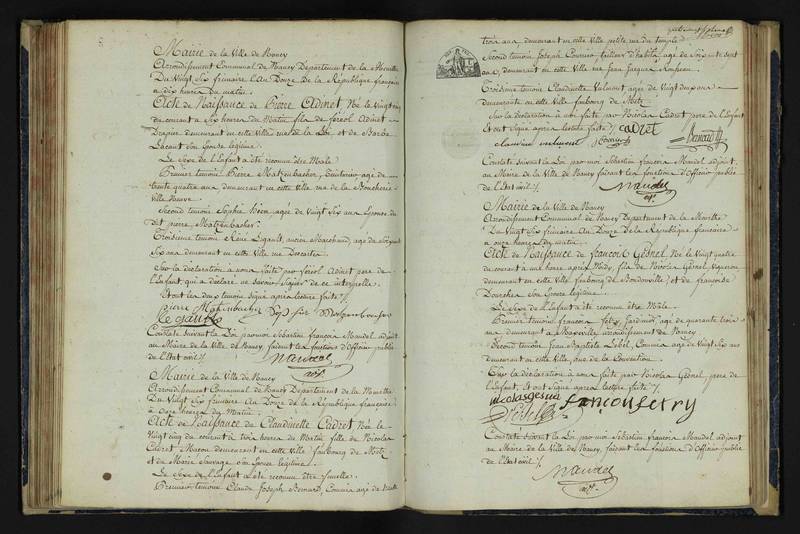 Mairie de la Ville de Nancy
Arrondissement Communal de Nancy Departement de la Meurthe
Du Vingt Six frimaire L'An Douze De la République française
a dix heures du matin
Acte de Naissance de Pierre Adinet Né le Vingt cinq
du courant a Six heures du Matin fils de fériol Adinet
Drapier demeurant en cette Ville rue de la Loi et de Barbe
Lacour Son Epouse légitime
Le Sexe de L'Enfant a été reconnu être Male
Premier temoin Pierre Matzenbacher, Teinturier agé de
trente quatre ans demeurant en cette Ville rue de la Boucherie
Ville Neuve
Second temoin Sophie agée de Vingt Six ans Epouse du
dit pierre Matzenbacher
Troisieme temoin René Ligault, ancien Marchand, agé de Soixante
Six ans demeurant en cette Ville rue Descartes
Sur la déclaration à nous faite par fériol Adinet pere de
L'Enfant, qui a déclaré ne Savoir Signer de ce interpellé
Et ont les deux temoins Signé après lecture faite /.
pierre Matzenbacher
Constaté Suivant la Loi par moi Sébastien françois Mandel adjoint
au Maire de la Ville de Nancy, faisant les fonctions d'Officier public
de l'Etat civil /.
Mandel
adjt.
Mairie de la Ville de Nancy
Arrondissement Communal de Nancy Departement de la Meurthe
Du Vingt Six frimaire An Douze de la République française
a onze heures du Matin
Acte de Naissance de Claudinette Cadret Née le
Vingt cinq du courant à trois heures du Matin fille de Nicolas
Cadret Macon demeurant en cette Ville faubourg de Metz
et de Marie Sauvage Son Epouse légitime
Le Sexe de L'Enfant a été reconnu être femelle
Premier temoin Claude Joseph Bernard, Commis agé de trente
trois ans demeurant en cette Ville petite rue du temple
Second temoin Joseph Courrier, tailleur d'habits, agé de Soixante Sept
ans, demeurant en cette Ville rue Jean Jacques Rousseau
Troisieme temoin Claudinette agée de Vingt deux ans
demeurante en cette Ville faubourg de Metz
Sur la déclaration à nous faite par Nicolas Cadret pere de l'Enfant
Et ont Signé après lecture faite /. cadret
Bernard
Constaté Suivant la Loi par moi Sébastien françois Mandel adjoint
au Maire de la Ville de Nancy faisant les fonctions d'Officier public
de l'Etat civil /.
Mandel
adjt.
Mairie de la Ville de Nancy
Arrondissement Communal de Nancy Departement de la Meurthe
Du Vingt Six frimaire An Douze De la République française
a onze heures du matin
Acte de Naissance de françois Gesnel Né le Vingt quatre
du courant à une heure après Midy, fils de Nicolas Gesnel Vigneron
demeurant en cette Ville faubourg de Bondonville, et de françoise
Son Epouse légitime
Le Sexe de L'Enfant a été reconnu être Male
Premier temoin françois fery Jardinier, agé de quarante trois
ans demeurant a Maxéville, arrondissement de Nancy
Second temoin Jean Baptiste Lebel, Commis agé de Vingt Six ans
demeurant en cette Ville, rue de la Convention
Sur la déclaration à nous faite par Nicolas Gesnel pere de
l'Enfant, Et ont Signé après lecture faite /.
nicolas gesnel
françois ferry
Constaté Suivant la Loi par moi Sébastien françois Mandel adjoint
au Maire de la Ville de Nancy, faisant les fonctions d'Officier public
de l'Etat civil /.
Mandel
adjt.